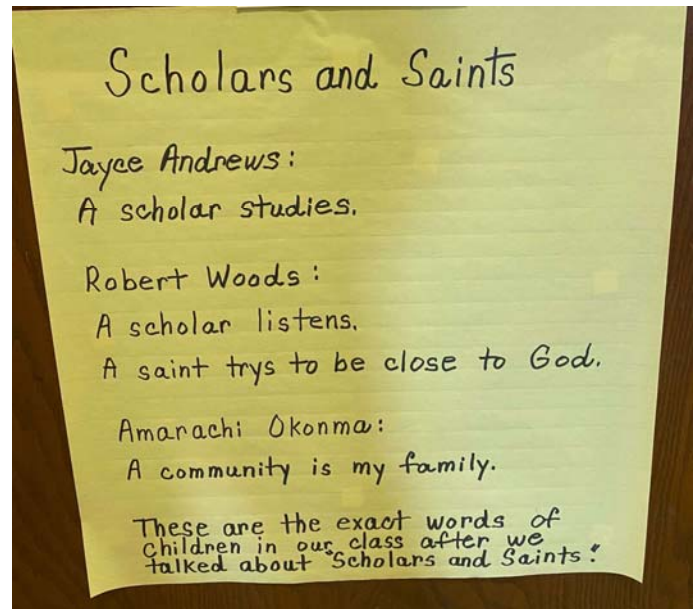 Scholars and Saints
Jayce Andrews:
A scholar studies.
Robert Woods:
A scholar listens.
A saint trys to be close to God.
Amarachi Okonma:
A community is my family.
These are the exact words of
children in our class after we
talked about "Scholars and Saints."